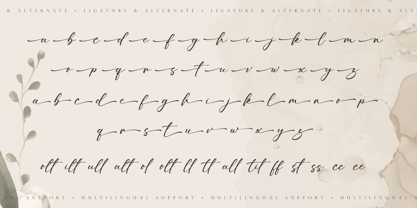 & ALTERNATE • LIGATURE & ALTERNATE • LIGATURE & ALTERNATE • LIGATURE & ALTERNATE • LIGATURE &
a b c d e f g h i j k l m n
o p q r s t u v w x y z
a b c d e f g h i j k l m n o p
q r s t u v w x y z
olt ilt ull alt ol olt ll tt all tit ff st ss ee ee
SUPPORT • MULTILINGUEL SUPPORT • MULTILINGUEL SUPPORT • MULTILINGUEL